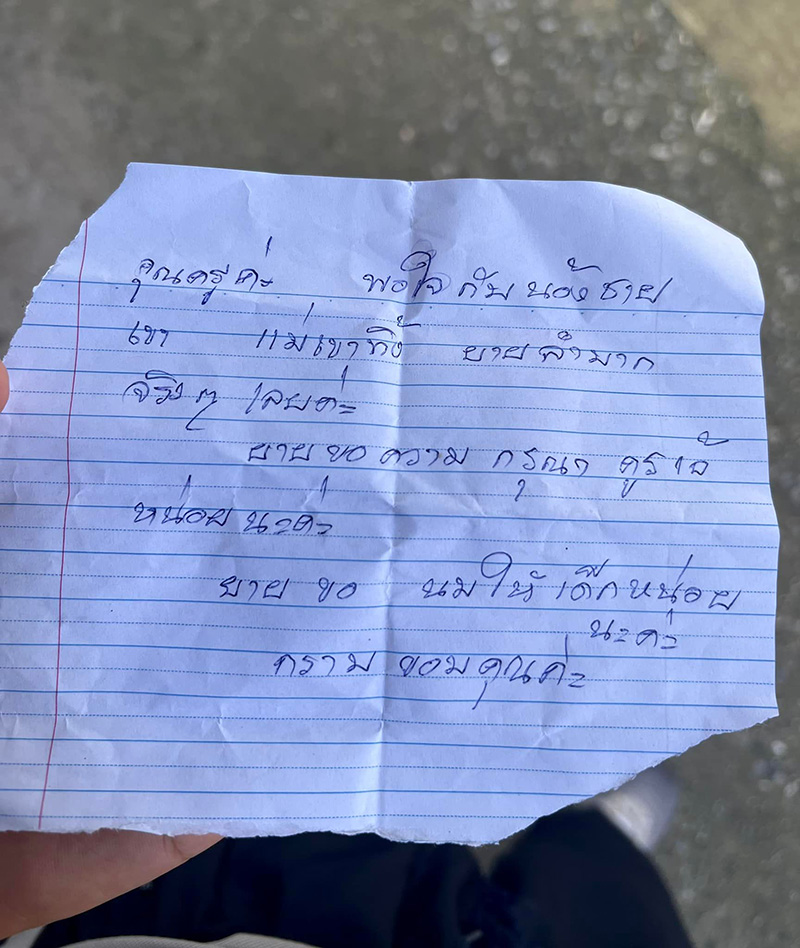 คุณครูค่ะ พอใจกับนอ้งชาย
เขา แม่เขาทิ้ง ยายลำมาก
จริงๆ เลยค่ะ
ยายขอความ กรุณา คูรเจ้
หน่อยนะค่ะ
ยาย ขอ นมให้เด็กหน่อย
นะค่ะ
กราบ ขอบคุณค่ะ